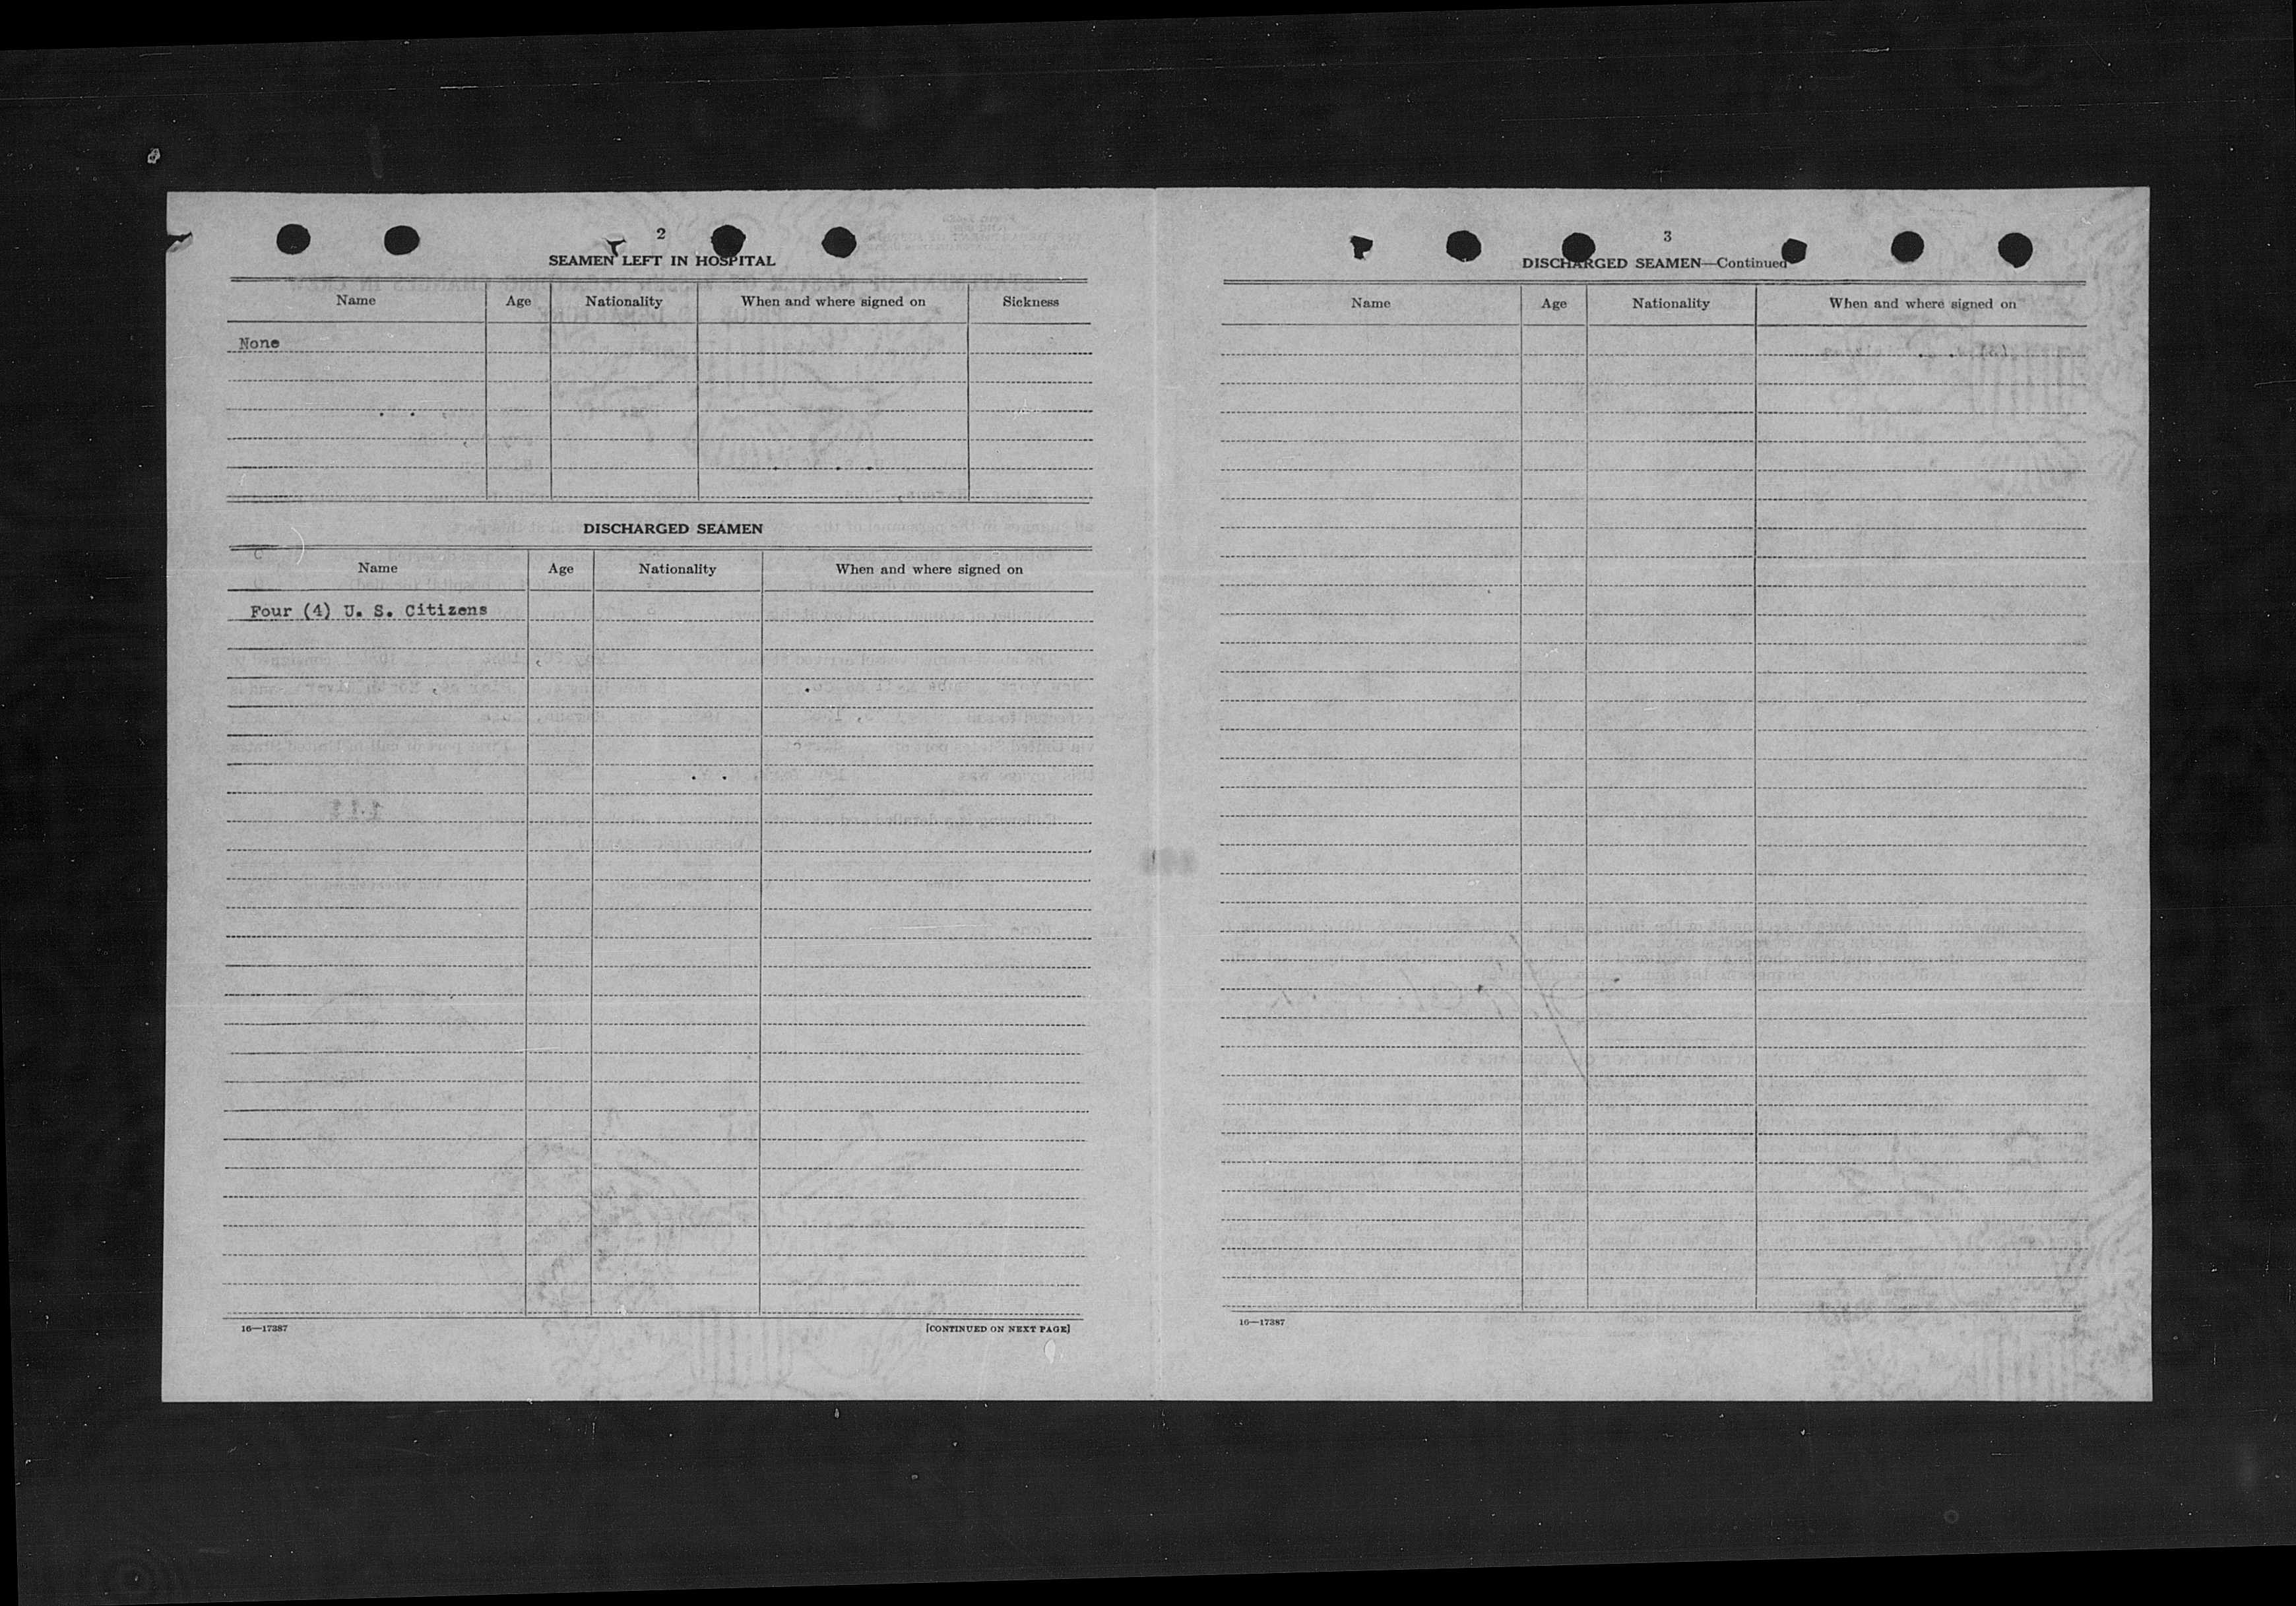 2
SEAMEN LEFT IN HOSPITAL
Name Age Nationality When and where signed on Sickness
None
DISCHARGED SEAMEN
Name Age Nationality When and where signed on
Four (4) U. S. Citizens
16—17387 [CONTINUED ON NEXT PAGE]
3
DISCHARGED SEAMEN—Continued
Name Age Nationality When and where signed on
16—17387